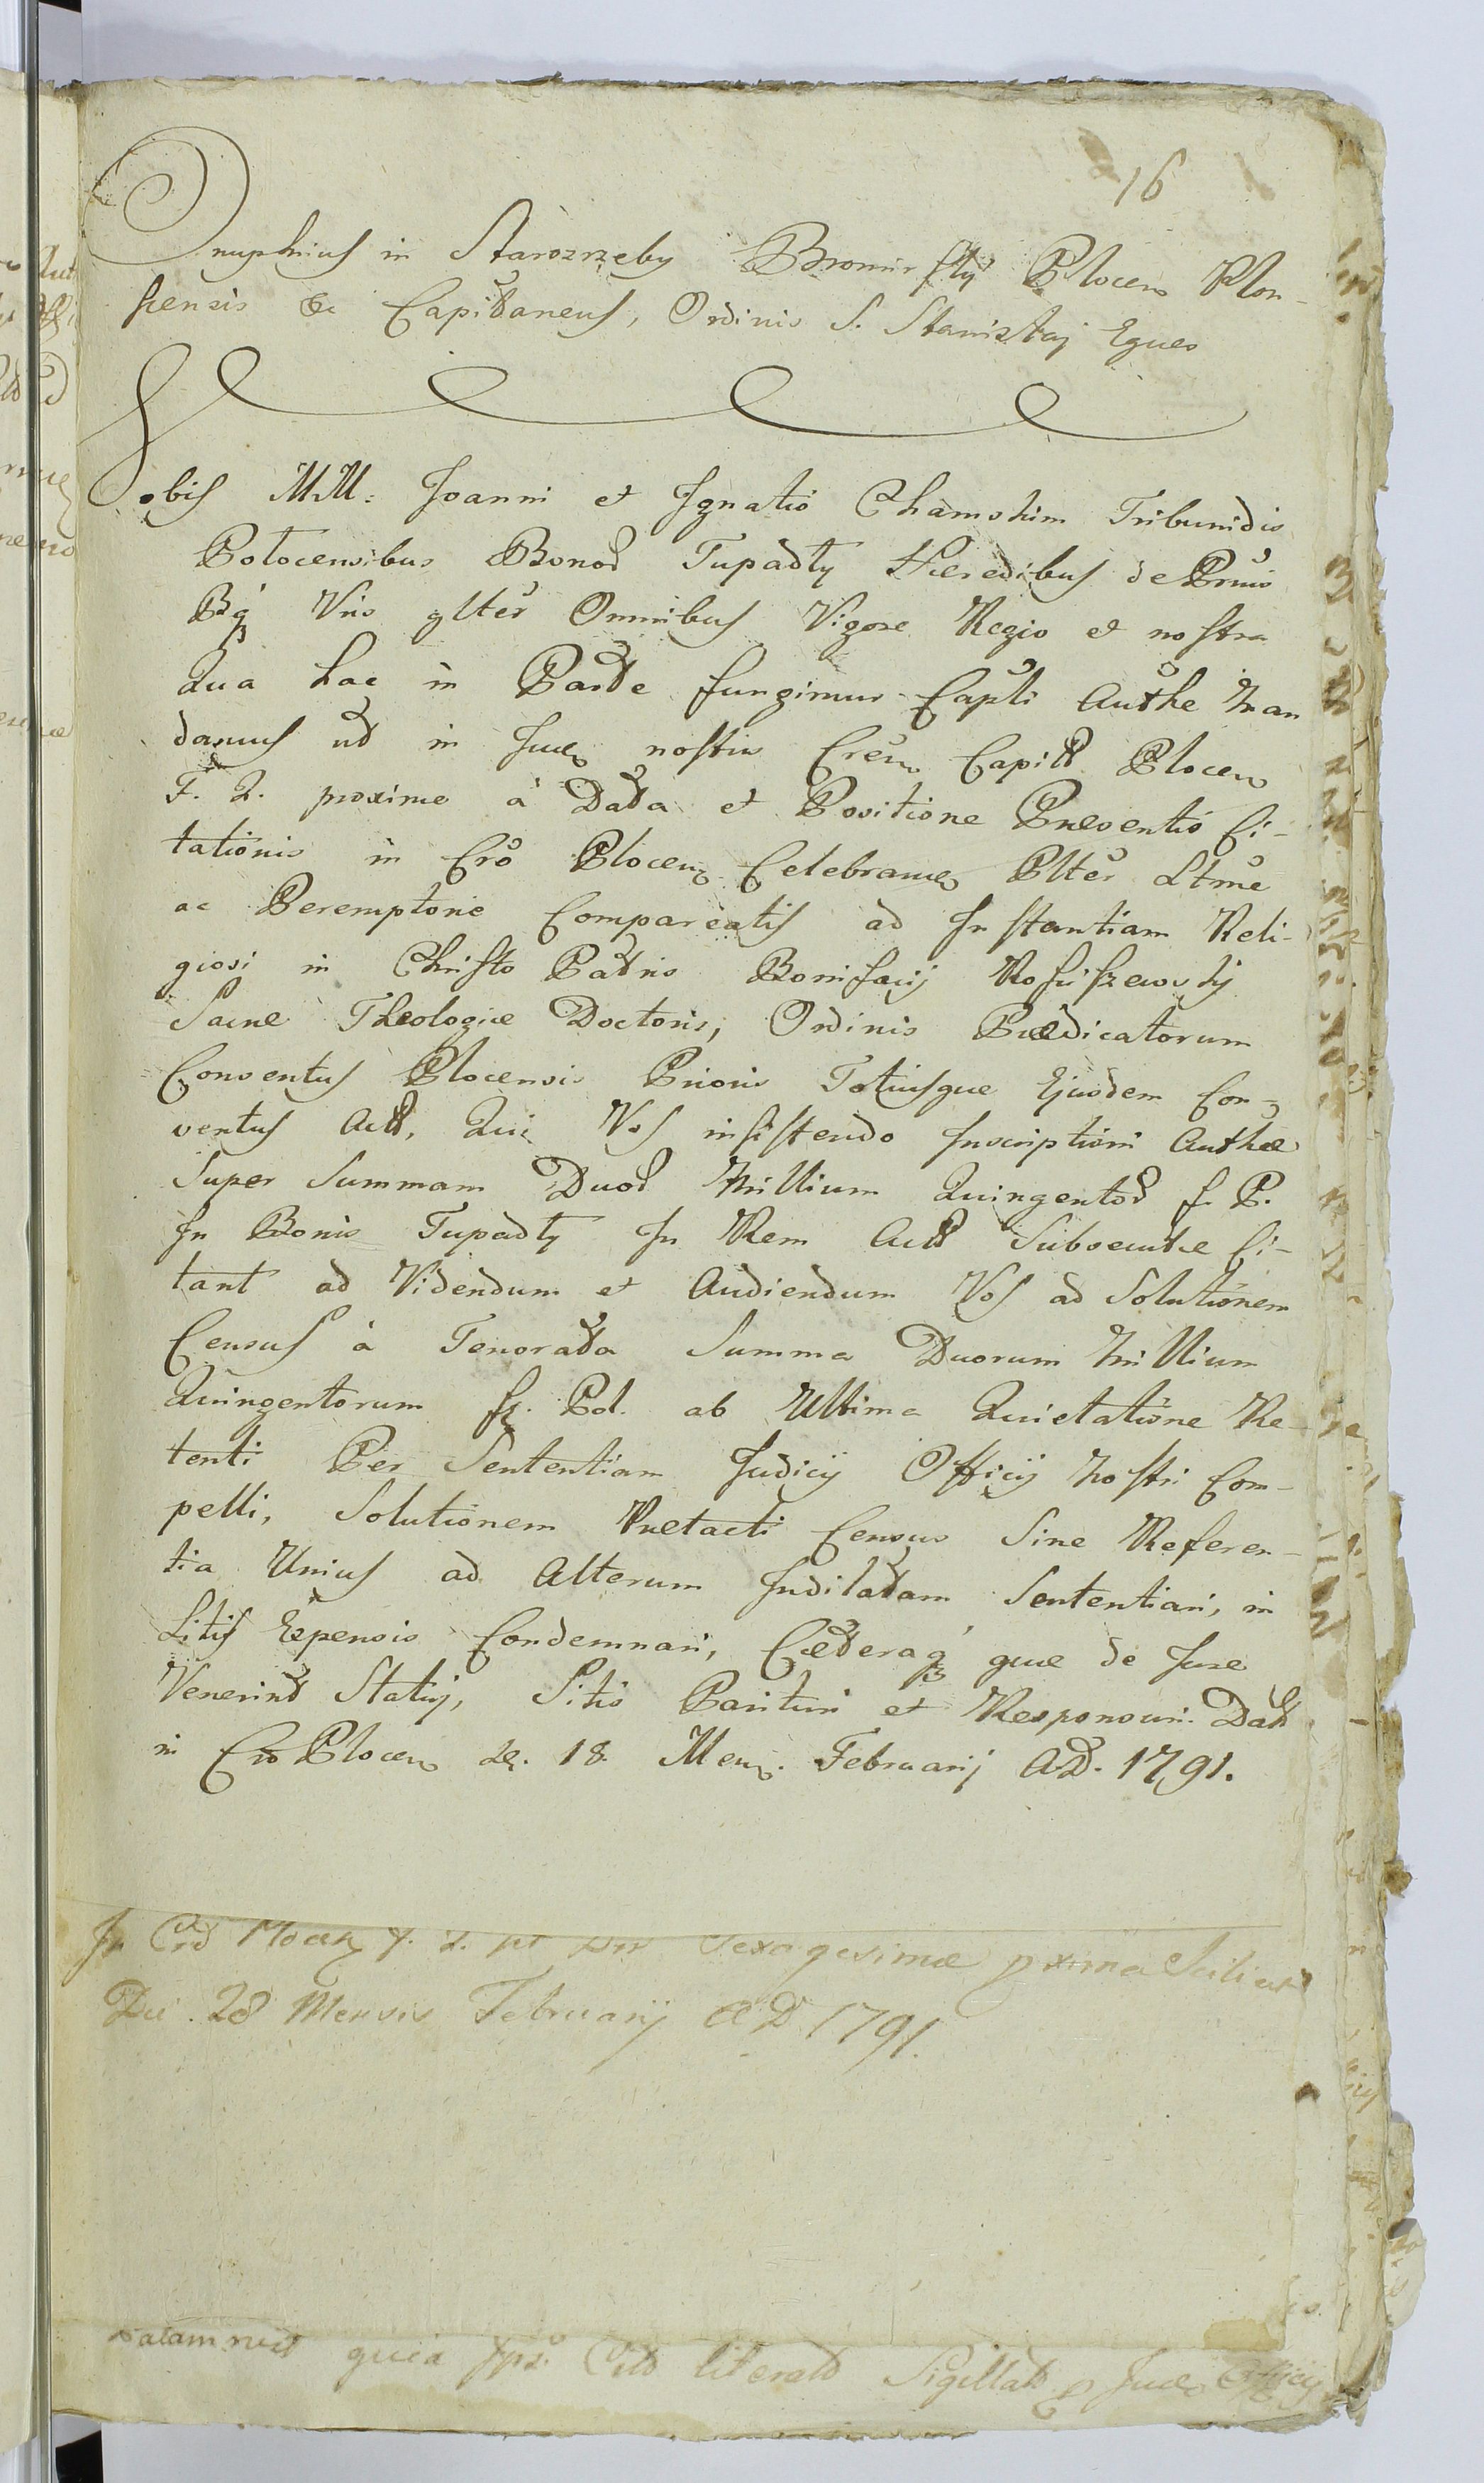 16
Onuphrius in Starozrzeby Bromirski Plocen Plon-
scensis &c Capitaneus, Ordinis S. Stanislaj Eques
Vobis MM: Joanni et Ignatio Chamskim Tribunidis
Plocensibus Bonor Tupadły Hæredibus de Prmis
Bq Vris glter Omnibus Vigore Regio et nostra
Qua hac in Parte fungimur Capli Authe Man
damus ut in Jud nostro Cren Capitl Plocen
F. 2. proxime à Data et Positione Præsentis Ci-
tationis in Cro Plocen Celebrand Plter Ltme
ac Peremptorie Compareatis ad Instantiam Reli-
giosi in Christo Patris Bonifacij
Sacræ Theologiæ Doctoris, Ordinis Prædicatorum
Conventus Plocensis Prioris Totiusque Ejusdem Con-
ventus Actt, Qui Vos insistendo Inscriptioni Authæ
Super Summam Duor Millium Quingentor f. P.
In Bonis Tupadły In Rem Actt Subsecutæ Ci-
tant ad Videndum et Audiendum Vos ad Solutionem
Census à Tenorata Summa Duorum Millium
Quingentorum fl. Pol. ab Ultima Quietatione Re-
tenti Per Sententiam Judicij Officij Nostri Com-
pelli, Solutionem Prætacti Census Sine Referen-
tia Unius ad Alterum Judicatam Sententiari, in
Litis Expensis Condemnari, Cæteraq quæ de Jure
Venerint Statuj, Sitis Parituri et Responsuri. Datt
in Cro Plocen de. 18. Mens. Februarij A.D. 1791.
In Cro Plocen F. 2. pt Sexagesimæ pxima Scilicet
Die 28 Mensis Februarij AD 1791.
quia Cit literat Sigillat Jud Officij